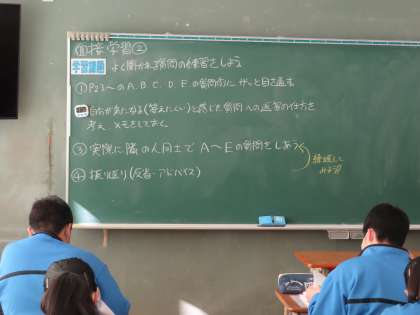 面接学習②
学習課題 よく聞かれる質問の練習をしよう
①P23～のA.B.C.D.Eの質問例にザッと目を通す
自分が気になる(答えにくい)と感じた質問への返答の仕方を
考え、メモをしておく。
③実際に隣の人同士でA～Eの質問をしあう
繰返して
みよう
④振り返り(反省・アドバイス)